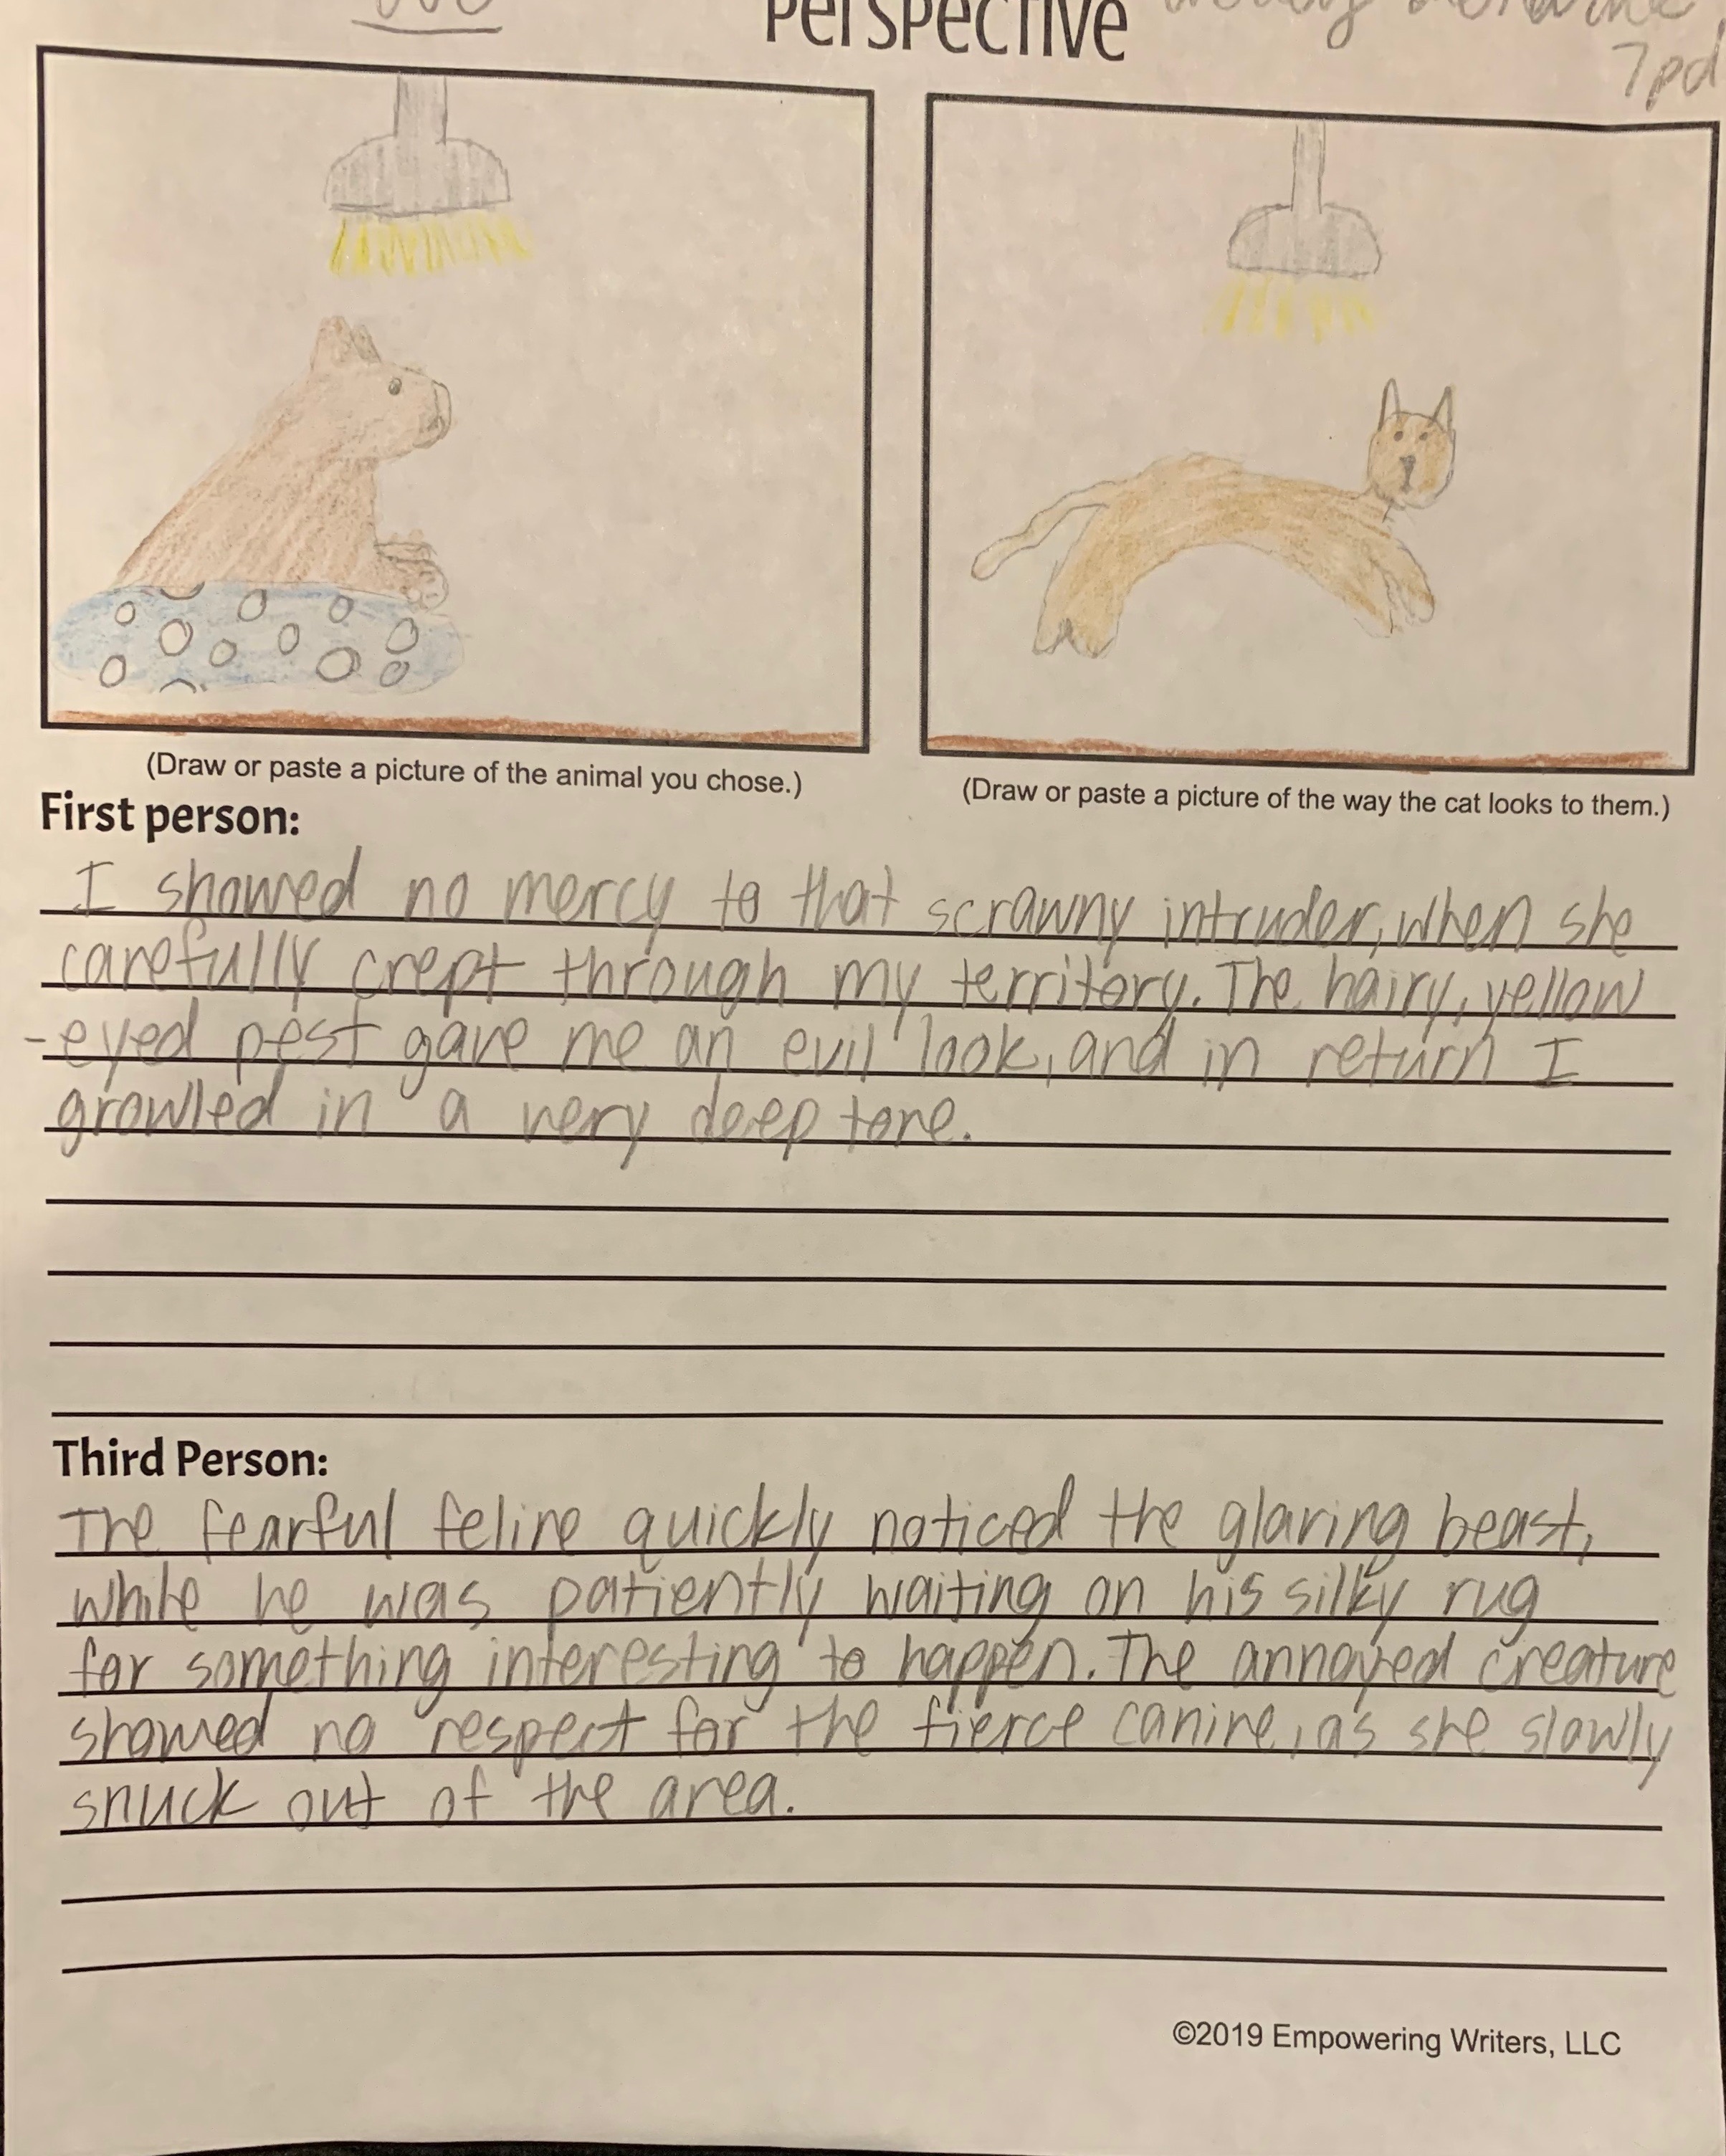 Perspective
7pd
(Draw or paste a picture of the animal you chose.)
(Draw or paste a picture of the way the cat looks to them.)
First person:
I showed no mercy to that scrawny intruder, when she
carefully crept through my territory. The hairy, yellow
-eyed pest gave me an evil look, and in return I
growled in a very deep tone.
Third Person:
The fearful feline quickly noticed the glaring beast,
while he was patiently waiting on his silky rug
for something interesting to happen. The annoyed creature
showed no respect for the fierce canine, as she slowly
snuck out of the area.
©2019 Empowering Writers, LLC